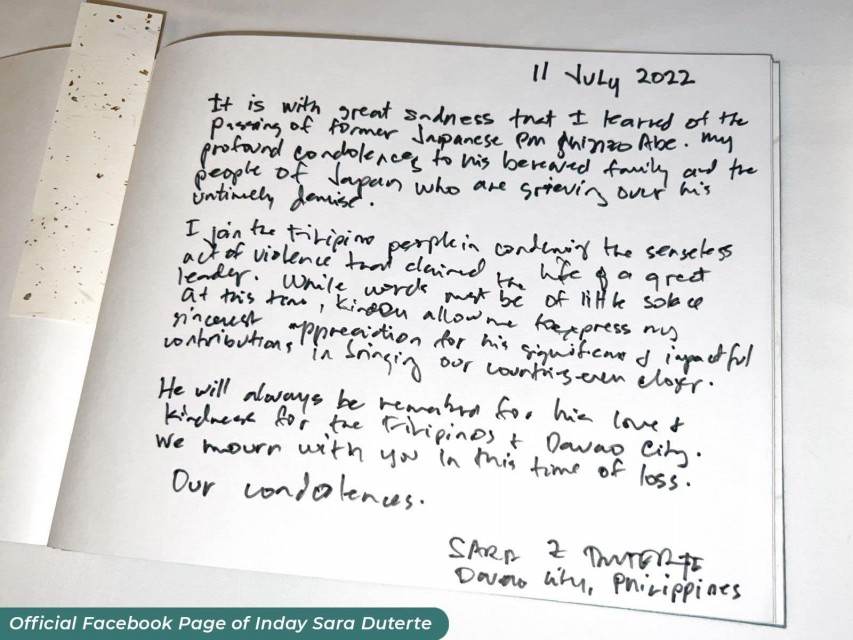 11 July 2022
It is with great sadness that I learned of the
passing of former Japanese PM Shinzo Abe. My
profound condolences to his bereaved family and the
people of Japan who are grieving over his
untimely demise.
I join the Filipino people in condemning the senseless
act of violence that claimed the life of a great
leader. While words must be of little solace
at this time, kindly allow me to express my
sincerest appreciation for his significant & impactful
contributions in bringing our countries even closer.
He will always be remembered for his love &
kindness for the Filipinos & Davao City.
We mourn with you in this time of loss.
Our condolences.
SARA Z DUTERTE
Davao City, Philippines
Official Facebook Page of Inday Sara Duterte